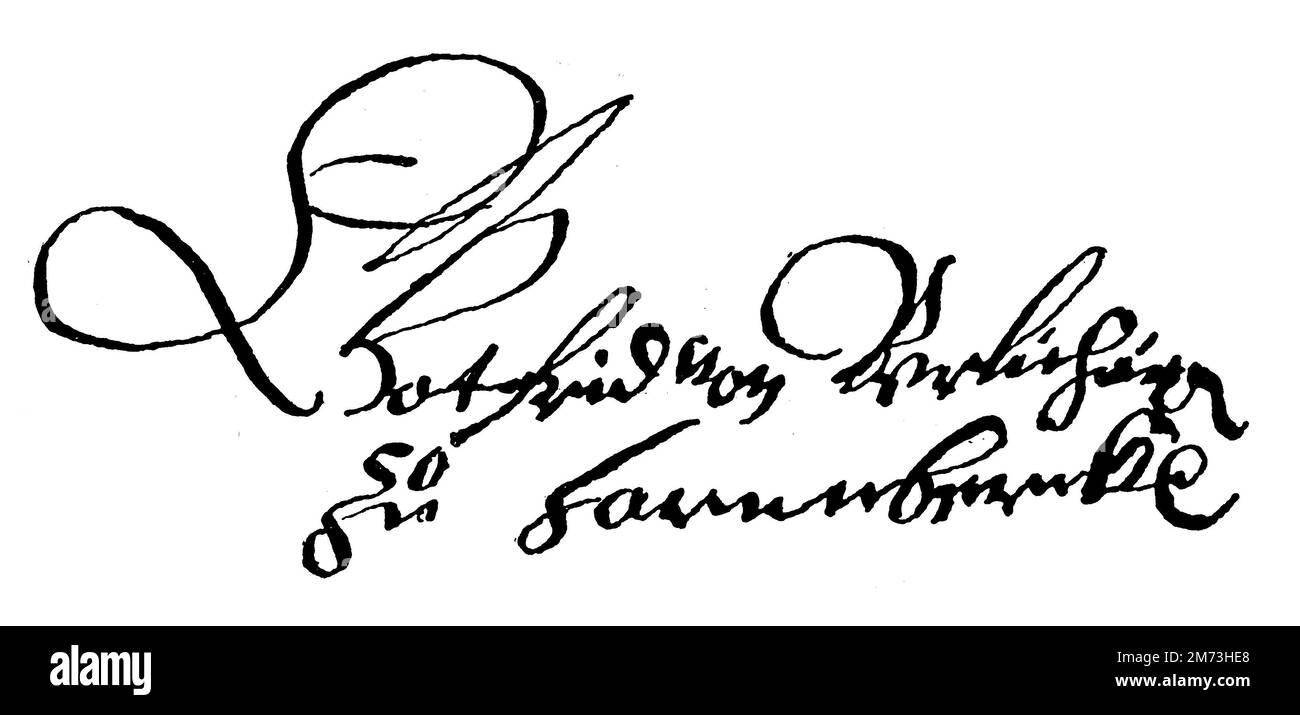 Gotfrid von Berliching
zu
alamy
Image ID: 2M73HE8
www.alamy.com